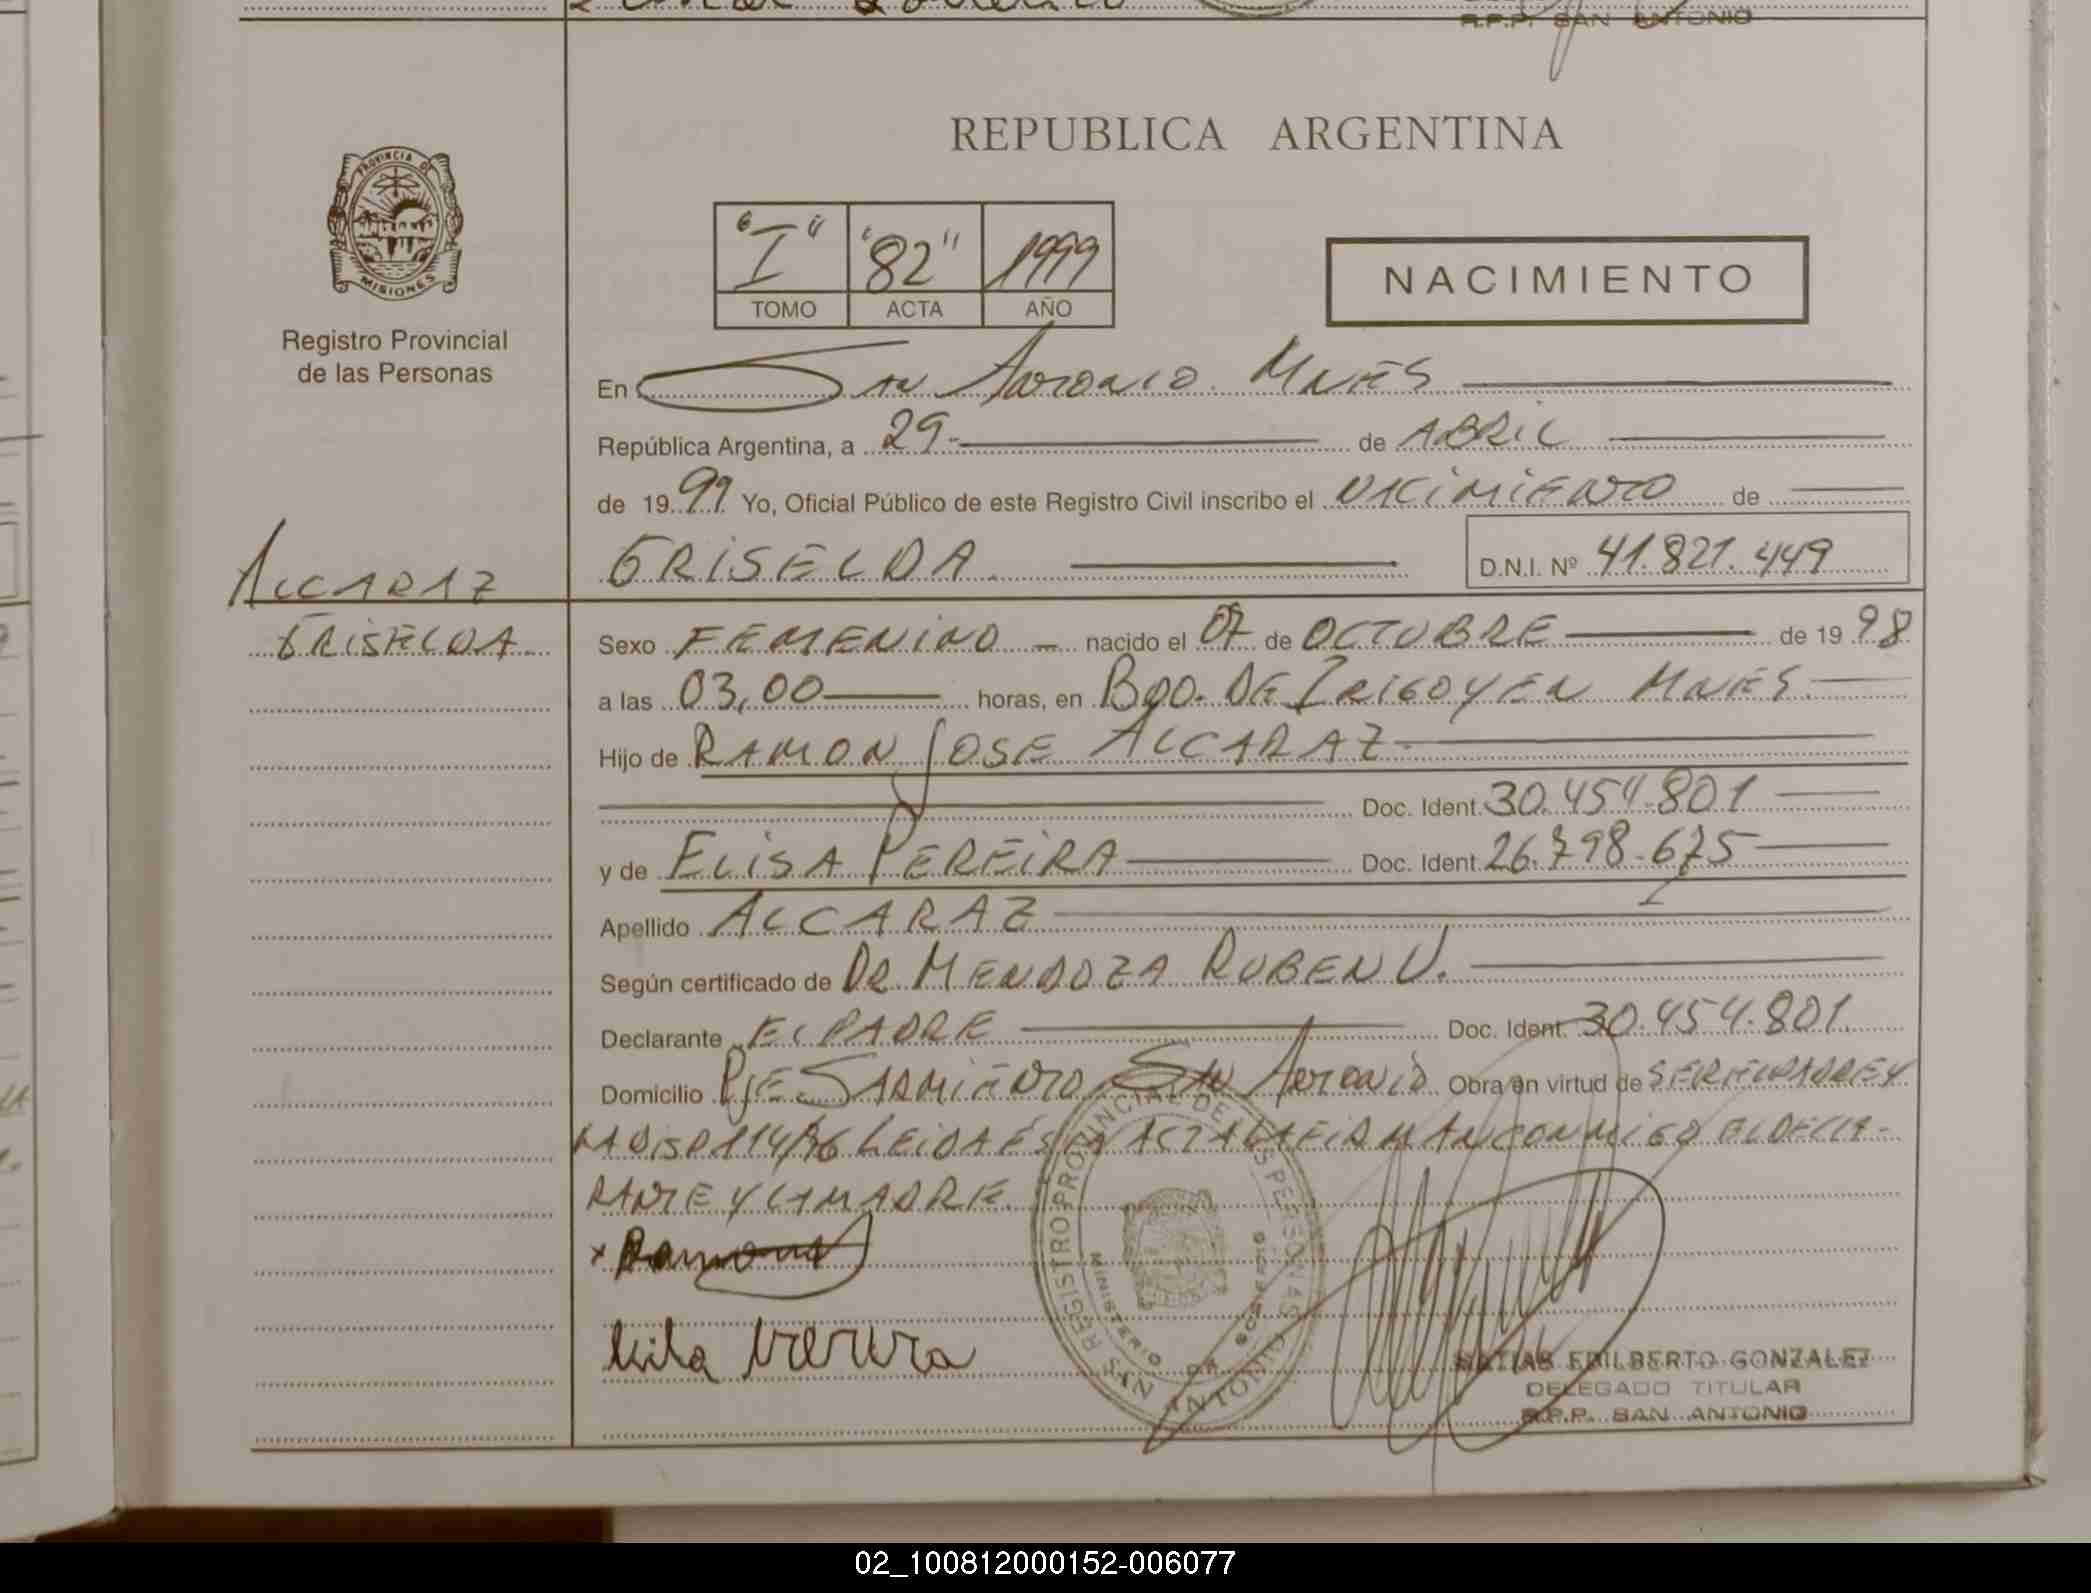 R.P.P. SAN ANTONIO
REPUBLICA ARGENTINA
PROVINCIA DE
MISIONES
"I" "82" 1999
TOMO ACTA AÑO
NACIMIENTO
Registro Provincial
de las Personas
En SAN ANTONIO MNES
República Argentina, a 29 de ABRIL
de 1999 Yo, Oficial Público de este Registro Civil inscribo el NACIMIENTO de
GRISELDA D.N.I. Nº 41.821.449
ALCARAZ
GRISELDA
Sexo FEMENINO nacido el 07 de OCTUBRE de 1998
a las 03,00 horas, en BDO. DE IRIGOYEN MNES.
Hijo de RAMON JOSE ALCARAZ
Doc. Ident. 30.454.801
y de ELISA PEREIRA Doc. Ident. 26.798.675
Apellido ALCARAZ
Según certificado de DR MENDOZA RUBEN V.
Declarante EL PADRE Doc. Ident. 30.454.801
Domicilio PJE SARMIENTO SAN ANTONIO Obra en virtud de SER EL PADRE Y
LA DISP 114/96 LEIDA ESTA ACTA LA FIRMAN CONMIGO EL DECLA-
RANTE Y LA MADRE
x Ramona
REGISTRO PROVINCIAL DE LAS PERSONAS
MINISTERIO DE GOBIERNO
SAN ANTONIO
MATIAS EDILBERTO GONZALEZ
DELEGADO TITULAR
R.P.P. SAN ANTONIO
02_100812000152-006077